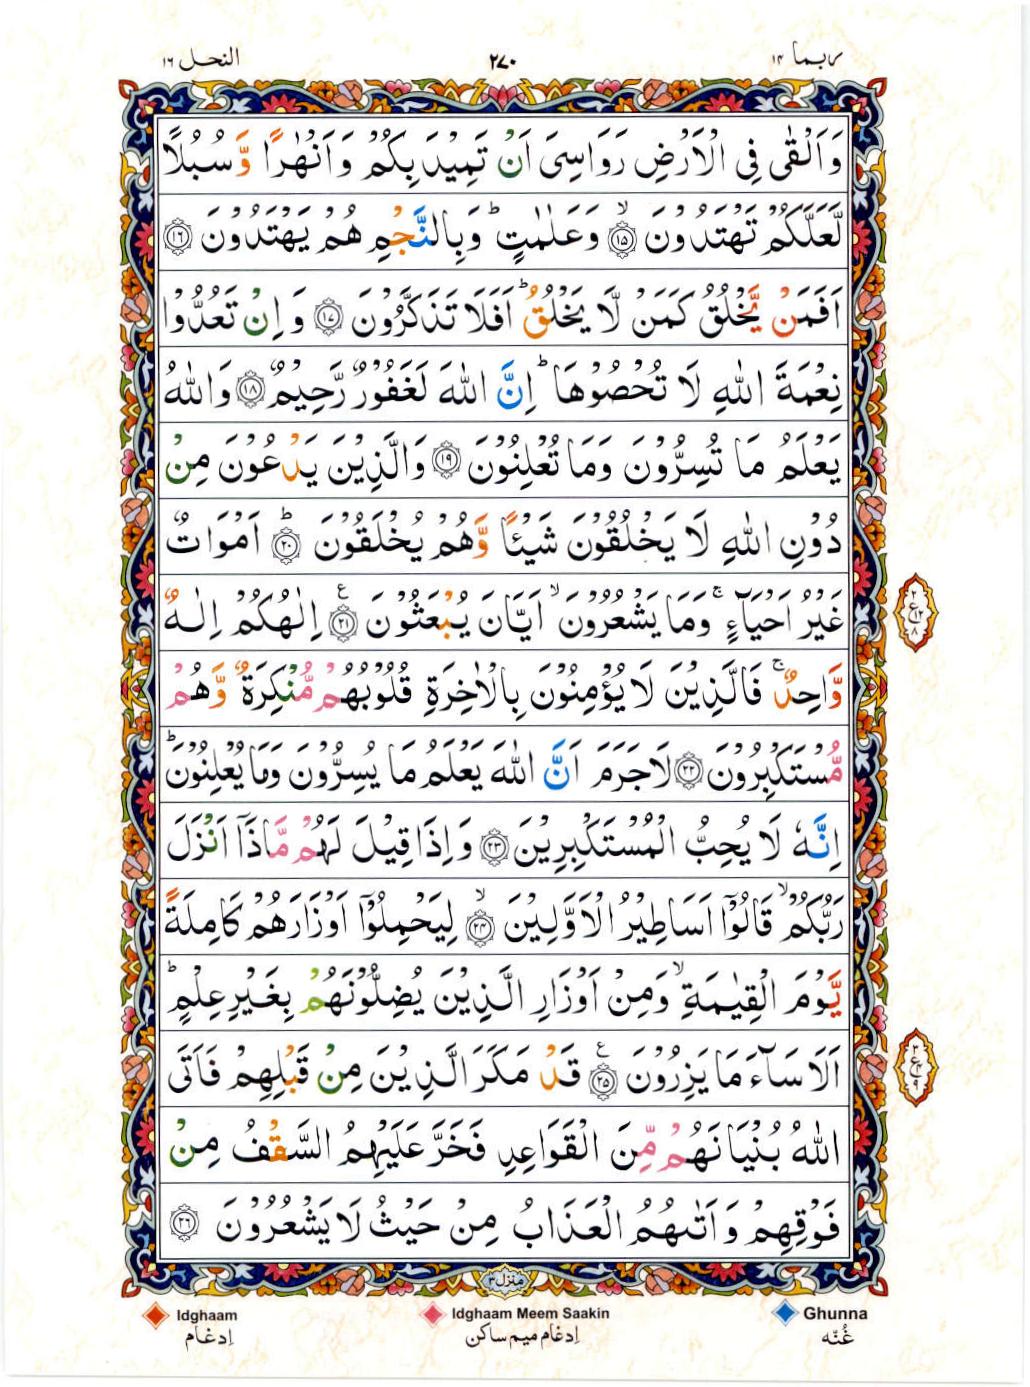 ربما ۱۴
۲۷۰
النحل ۱۶
وَاَلْقٰى فِى الْاَرْضِ رَوَاسِىَ اَنْ تَمِيْدَ بِكُمْ وَاَنْهٰرًا وَّسُبُلًا
لَّعَلَّكُمْ تَهْتَدُوْنَ ۙ‏﴿۱۵﴾ وَعَلٰمٰتٍ ؕ وَبِالنَّجْمِ هُمْ يَهْتَدُوْنَ ‏﴿۱۶﴾
اَفَمَنْ يَّخْلُقُ كَمَنْ لَّا يَخْلُقُ ؕ اَفَلَا تَذَكَّرُوْنَ ‏﴿۱۷﴾ وَاِنْ تَعُدُّوْا
نِعْمَةَ اللّٰهِ لَا تُحْصُوْهَا ؕ اِنَّ اللّٰهَ لَغَفُوْرٌ رَّحِيْمٌ ‏﴿۱۸﴾ وَاللّٰهُ
يَعْلَمُ مَا تُسِرُّوْنَ وَمَا تُعْلِنُوْنَ ‏﴿۱۹﴾ وَالَّذِيْنَ يَدْعُوْنَ مِنْ
دُوْنِ اللّٰهِ لَا يَخْلُقُوْنَ شَيْـًٔا وَّهُمْ يُخْلَقُوْنَ ؕ‏﴿۲۰﴾ اَمْوَاتٌ
غَيْرُ اَحْيَآءٍ ۚ وَمَا يَشْعُرُوْنَ ۙ اَيَّانَ يُبْعَثُوْنَ ‏﴿۲۱﴾ع اِلٰهُكُمْ اِلٰهٌ
وَّاحِدٌ ۚ فَالَّذِيْنَ لَا يُؤْمِنُوْنَ بِالْاٰخِرَةِ قُلُوْبُهُمْ مُّنْكِرَةٌ وَّهُمْ
مُّسْتَكْبِرُوْنَ ‏﴿۲۲﴾ لَا جَرَمَ اَنَّ اللّٰهَ يَعْلَمُ مَا يُسِرُّوْنَ وَمَا يُعْلِنُوْنَ ؕ
اِنَّهٗ لَا يُحِبُّ الْمُسْتَكْبِرِيْنَ ‏﴿۲۳﴾ وَاِذَا قِيْلَ لَهُمْ مَّاذَاۤ اَنْزَلَ
رَبُّكُمْ ۙ قَالُوْۤا اَسَاطِيْرُ الْاَوَّلِيْنَ ۙ‏﴿۲۴﴾ لِيَحْمِلُوْۤا اَوْزَارَهُمْ كَامِلَةً
يَّوْمَ الْقِيٰمَةِ ۙ وَمِنْ اَوْزَارِ الَّذِيْنَ يُضِلُّوْنَهُمْ بِغَيْرِ عِلْمٍ ؕ
اَلَا سَآءَ مَا يَزِرُوْنَ ‏﴿۲۵﴾ع قَدْ مَكَرَ الَّذِيْنَ مِنْ قَبْلِهِمْ فَاَتَى
اللّٰهُ بُنْيَانَهُمْ مِّنَ الْقَوَاعِدِ فَخَرَّ عَلَيْهِمُ السَّقْفُ مِنْ
فَوْقِهِمْ وَاَتٰٮهُمُ الْعَذَابُ مِنْ حَيْثُ لَا يَشْعُرُوْنَ ‏﴿۲۶﴾
منزل ۳
Idghaam Idghaam Meem Saakin Ghunna
اِدغام اِدغام میم ساکن غُنّه